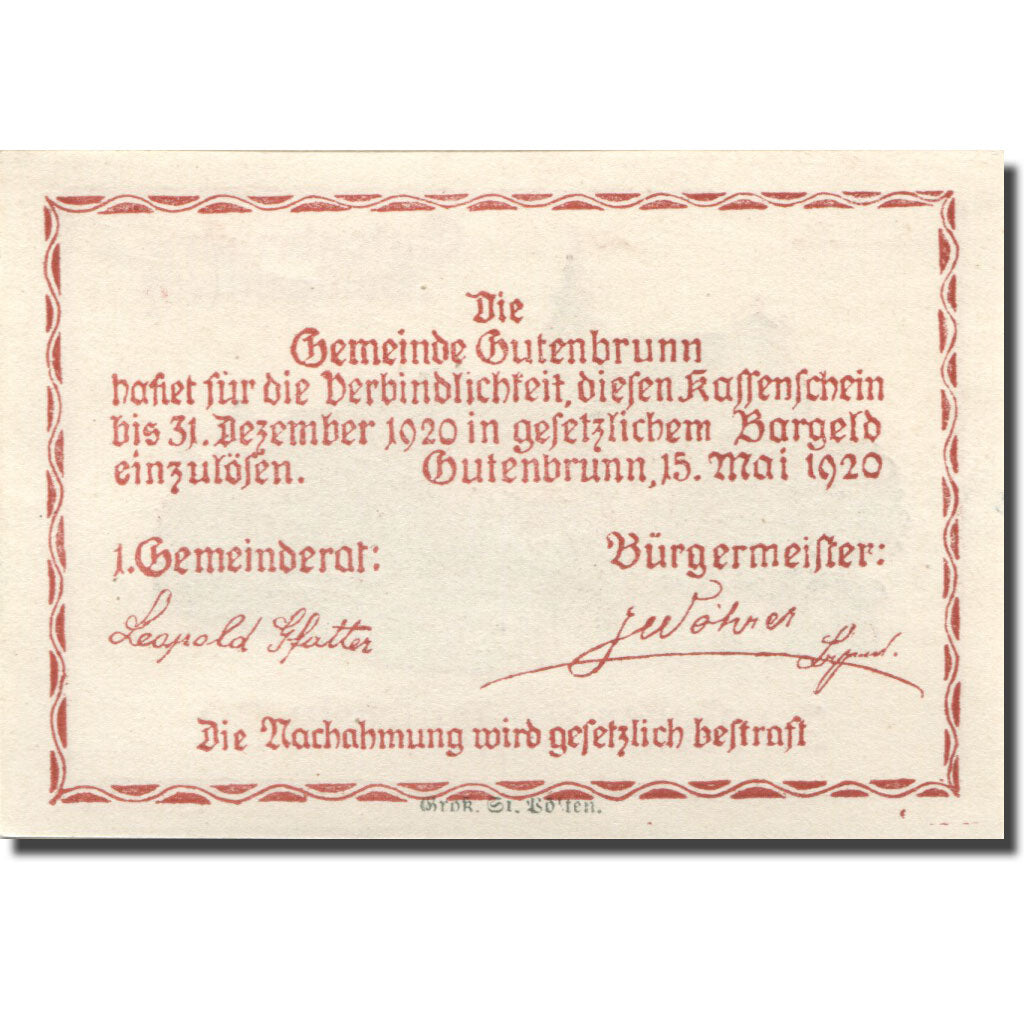 Die
Gemeinde Gutenbrunn
haftet für die Verbindlichkeit, diesen Kassenschein
bis 31. Dezember 1920 in gesetzlichem Bargeld
einzulösen. Gutenbrunn, 15. Mai 1920
1. Gemeinderat: Bürgermeister:
Leopold JWöhrer
Die Nachahmung wird gesetzlich bestraft
St. Pö'ten.